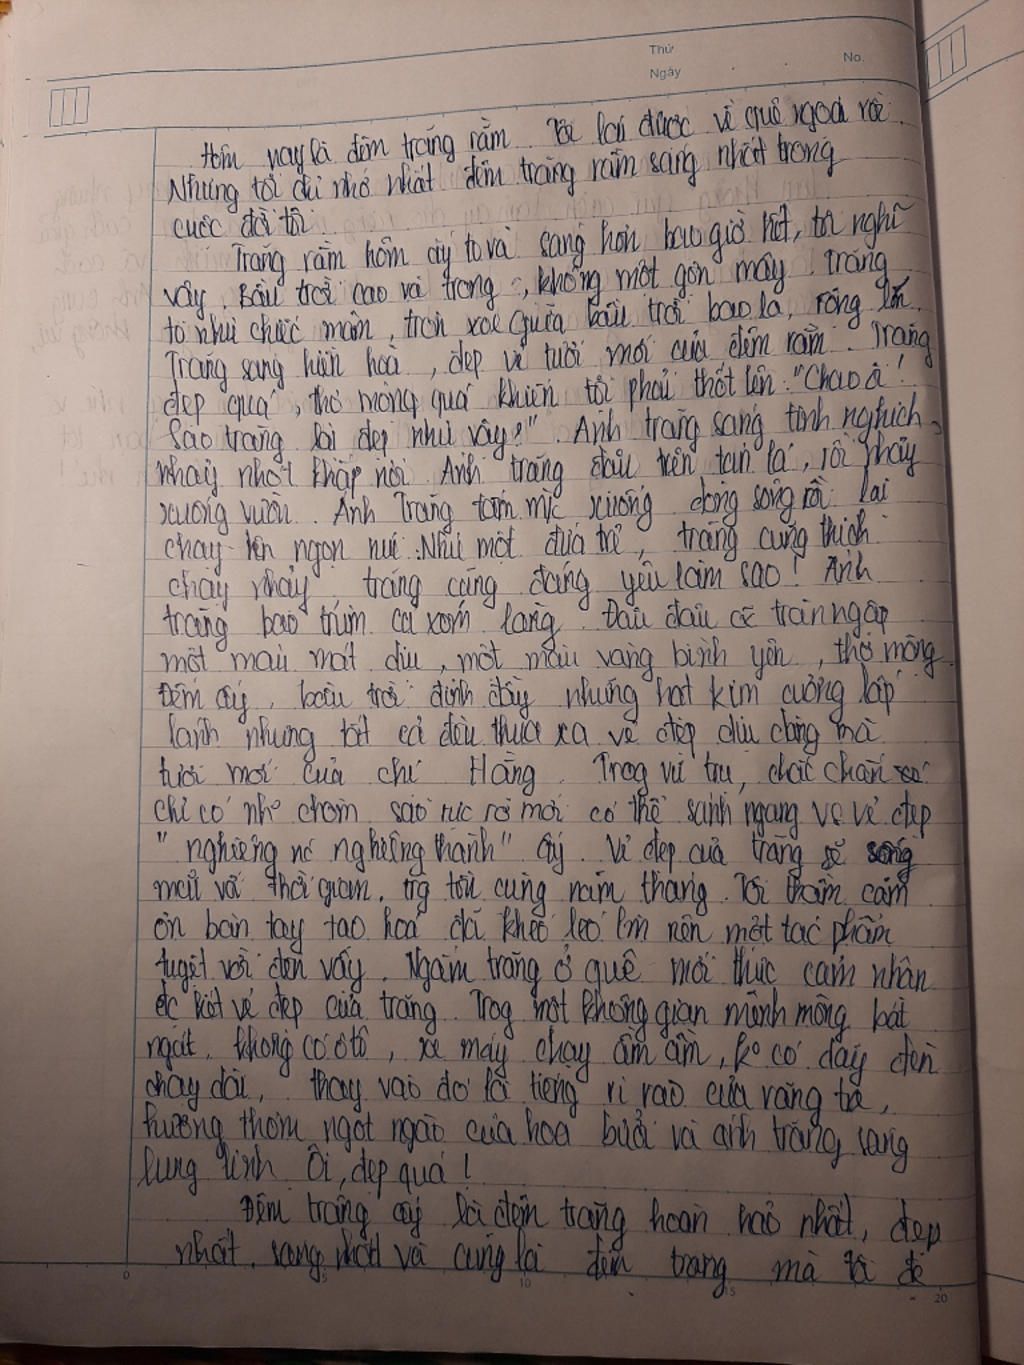 Thứ
Ngày
No.
Hôm nay là đêm trăng rằm. Tôi lại được về quê ngoại rồi.
Nhưng tôi chỉ nhớ nhất đêm trăng rằm sáng nhất trong
cuộc đời tôi.
Trăng rằm hôm ấy to và sáng hơn bao giờ hết, tôi nghĩ
vậy. Bầu trời cao và trong, không một gợn mây. Trăng
to như chiếc mâm, tròn xoe giữa bầu trời bao la, rộng lớn.
Trăng sáng hiền hoà, đẹp vẻ tươi mới của đêm rằm. Trăng
đẹp quá, thơ mộng quá khiến tôi phải thốt lên: "Chao ôi!
Sao trăng lại đẹp như vậy?". Ánh trăng sáng tinh nghịch,
nhảy nhót khắp nơi. Ánh trăng đậu trên tán lá, rồi nhảy
xuống vườn. Ánh Trăng tắm mic xuống dòng sông rồi lại
chạy lên ngọn núi. Như một đứa trẻ, trăng cũng thích
chạy nhảy, trăng cũng đáng yêu làm sao! Ánh
trăng bao trùm cả xóm làng. Đâu đâu cũg tràn ngập
một màu mát dịu, một màu vàng bình yên, thơ mộng.
Đêm ấy, bầu trời đính đầy những hạt kim cương lấp
lánh nhưng tất cả đều thua xa vẻ đẹp dịu dàng mà
tươi mới của chị Hằng. Trog vũ trụ, chắc chắn
chỉ có nhữ chòm sao rực rỡ mới có thể sánh ngang vs vẻ đẹp
"nghiêng nc nghiêng thành" ấy. Vẻ đẹp của trăng sẽ sống
mãi với thời gian, trg tồn cùng năm tháng. Tôi thầm cảm
ơn bàn tay tạo hoá đã khéo léo lm nên một tác phẩm
tuyệt vời đến vậy. Ngắm trăng ở quê mới thực cảm nhận
đc hết vẻ đẹp của trăng. Trog một không gian mênh mông, bát
ngát, không có ô tô, xe máy chạy ầm ầm, ko có dãy đèn
chạy dài, thay vào đó là tiếng rì rào của rặng tre,
hương thơm ngọt ngào của hoa bưởi và ánh trăng sáng
lung linh. Ôi, đẹp quá!
Đêm trăng ấy là đêm trăng hoàn hảo nhất, đẹp
nhất, sáng nhất và cũng là đêm trăng mà tôi để
0
5
10
15
20